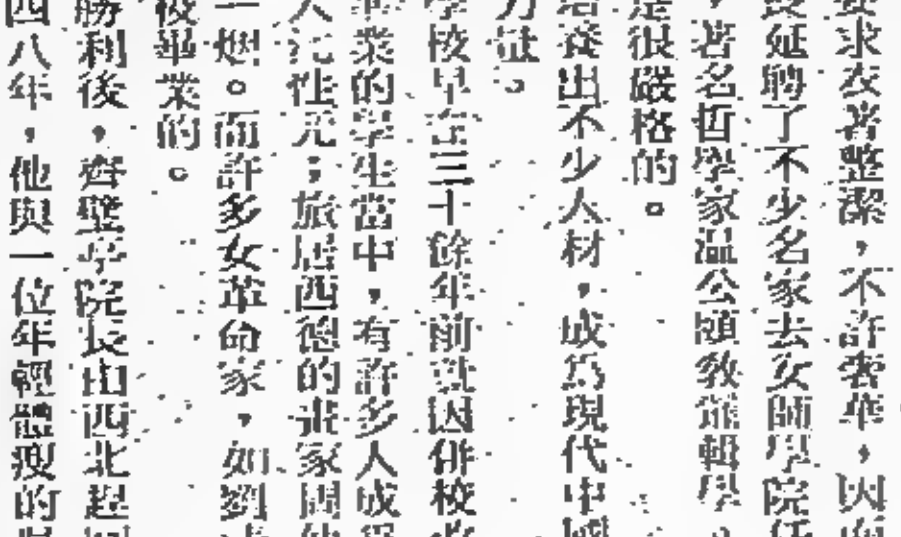 求衣著整潔，不許奢華，因而
延聘了不少名家去女師學院任
，著名哲學家温公頤教邏輯學
是很嚴格的。
培養出不少人材，成爲現代中國
力量。
學校早在三十餘年前就因併校改
畢業的學生當中，有許多人成爲
人沉性元；旅居西德的畫家周仲
一烟。而許多女革命家，如劉清
校畢業的。
勝利後，齊璧亭院長由西北趕回
四八年，他與一位年輕體瘦的